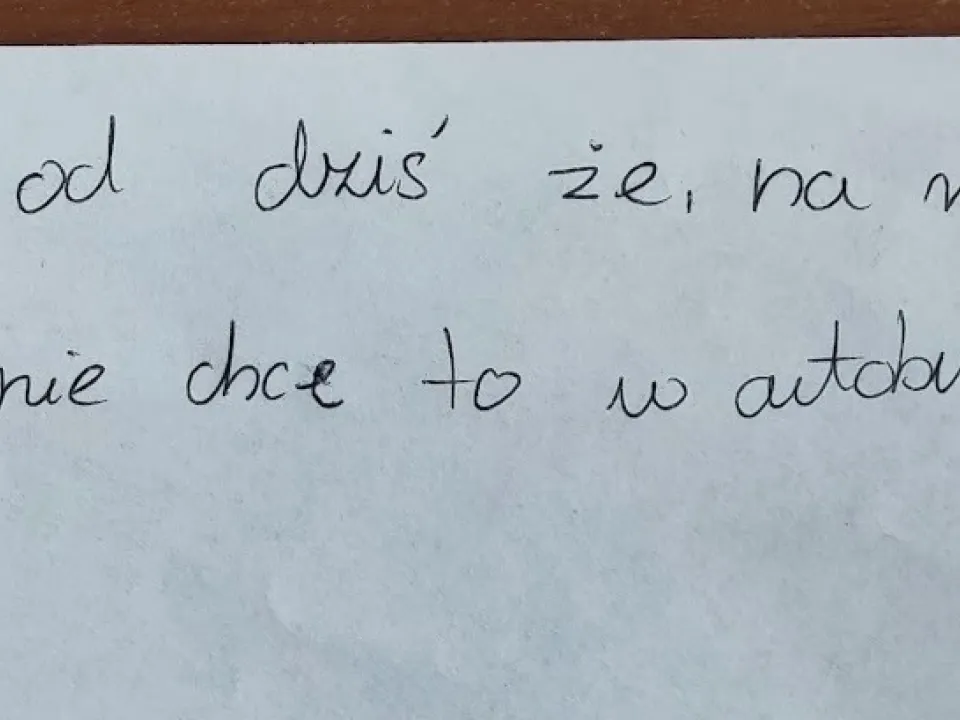 od dziś że, na
nie chcę to w autobu